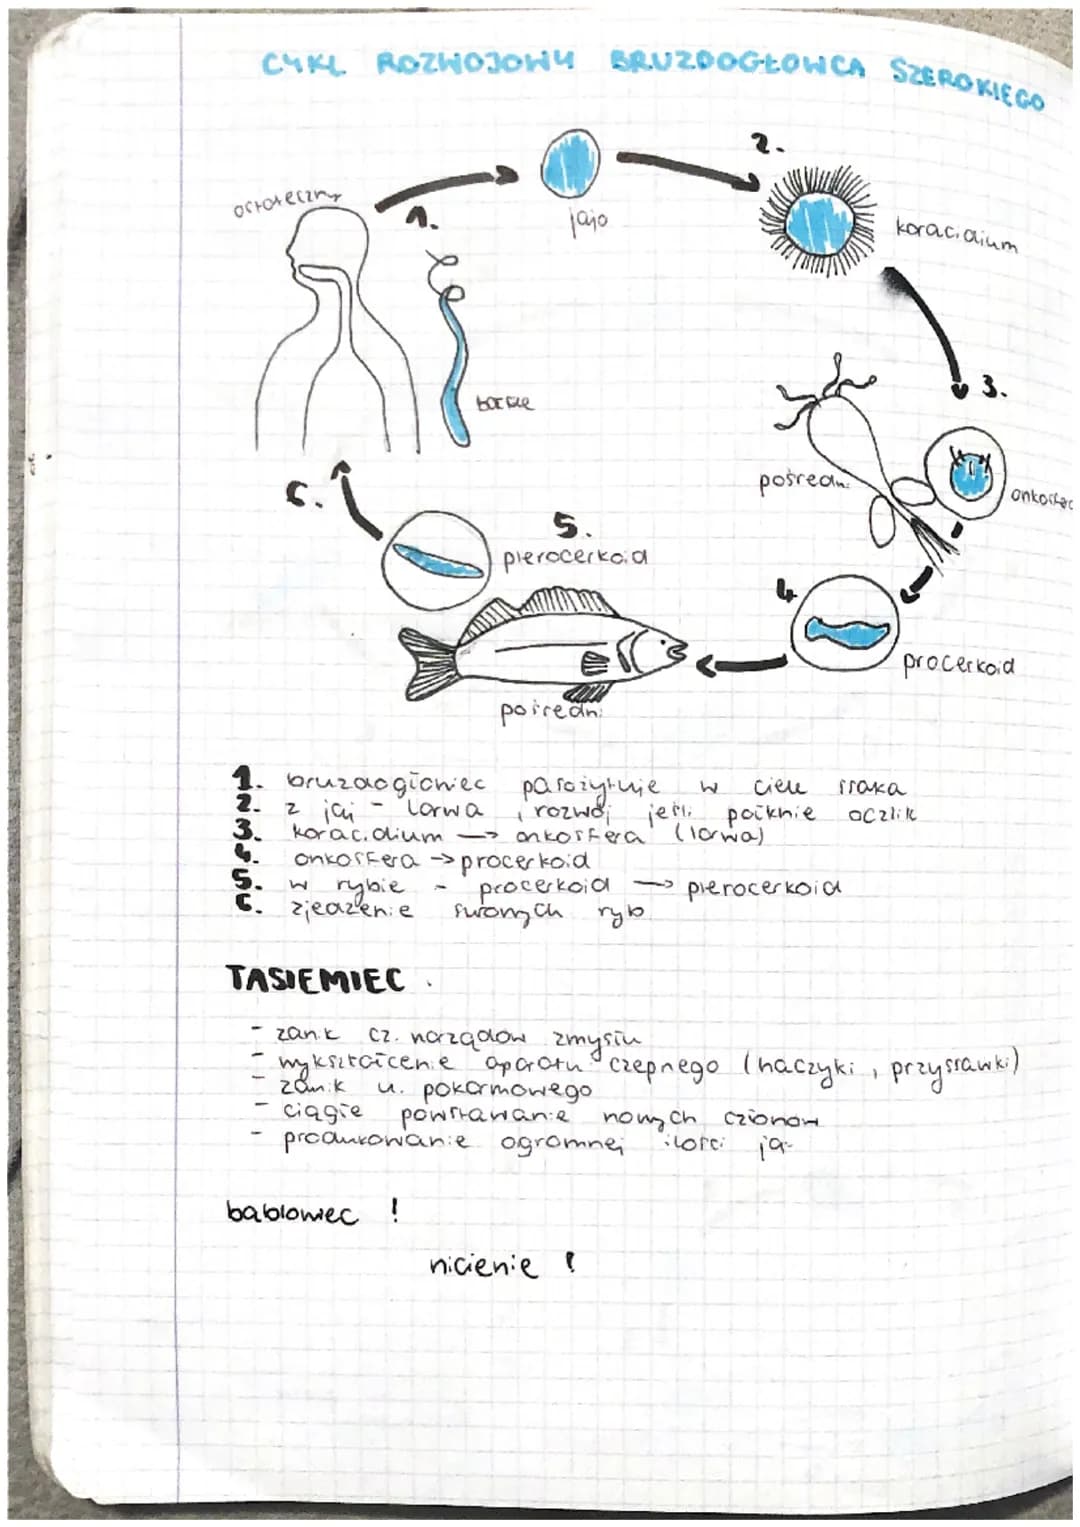 CYKL ROZWOJOWY BRUZDOGŁOWCA SZEROKIEGO
ostateczny
1.
jajo
2.
koracidium
3.
pośredni
onkosfe
4.
procerkoid
5.
plerocerkoid
pośredni
6.
1. bruzdogłowiec pasożytuje w ciele ssaka
2. z jaj - larwa, rozwój jeśli połknie oczlik
3. koracidium → onkosfera (larwa)
4. onkosfera → procerkoid
5. w rybie - procerkoid → plerocerkoid
6. zjedzenie surowych ryb
TASIEMIEC
- zanik cz. narządów zmysłu
- wykształcenie aparatu czepnego (haczyki, przyssawki)
- zanik u. pokarmowego
- ciągłe powstawanie nowych członów
- produkowanie ogromnej ilości jaj
bąblowiec !
nicienie !